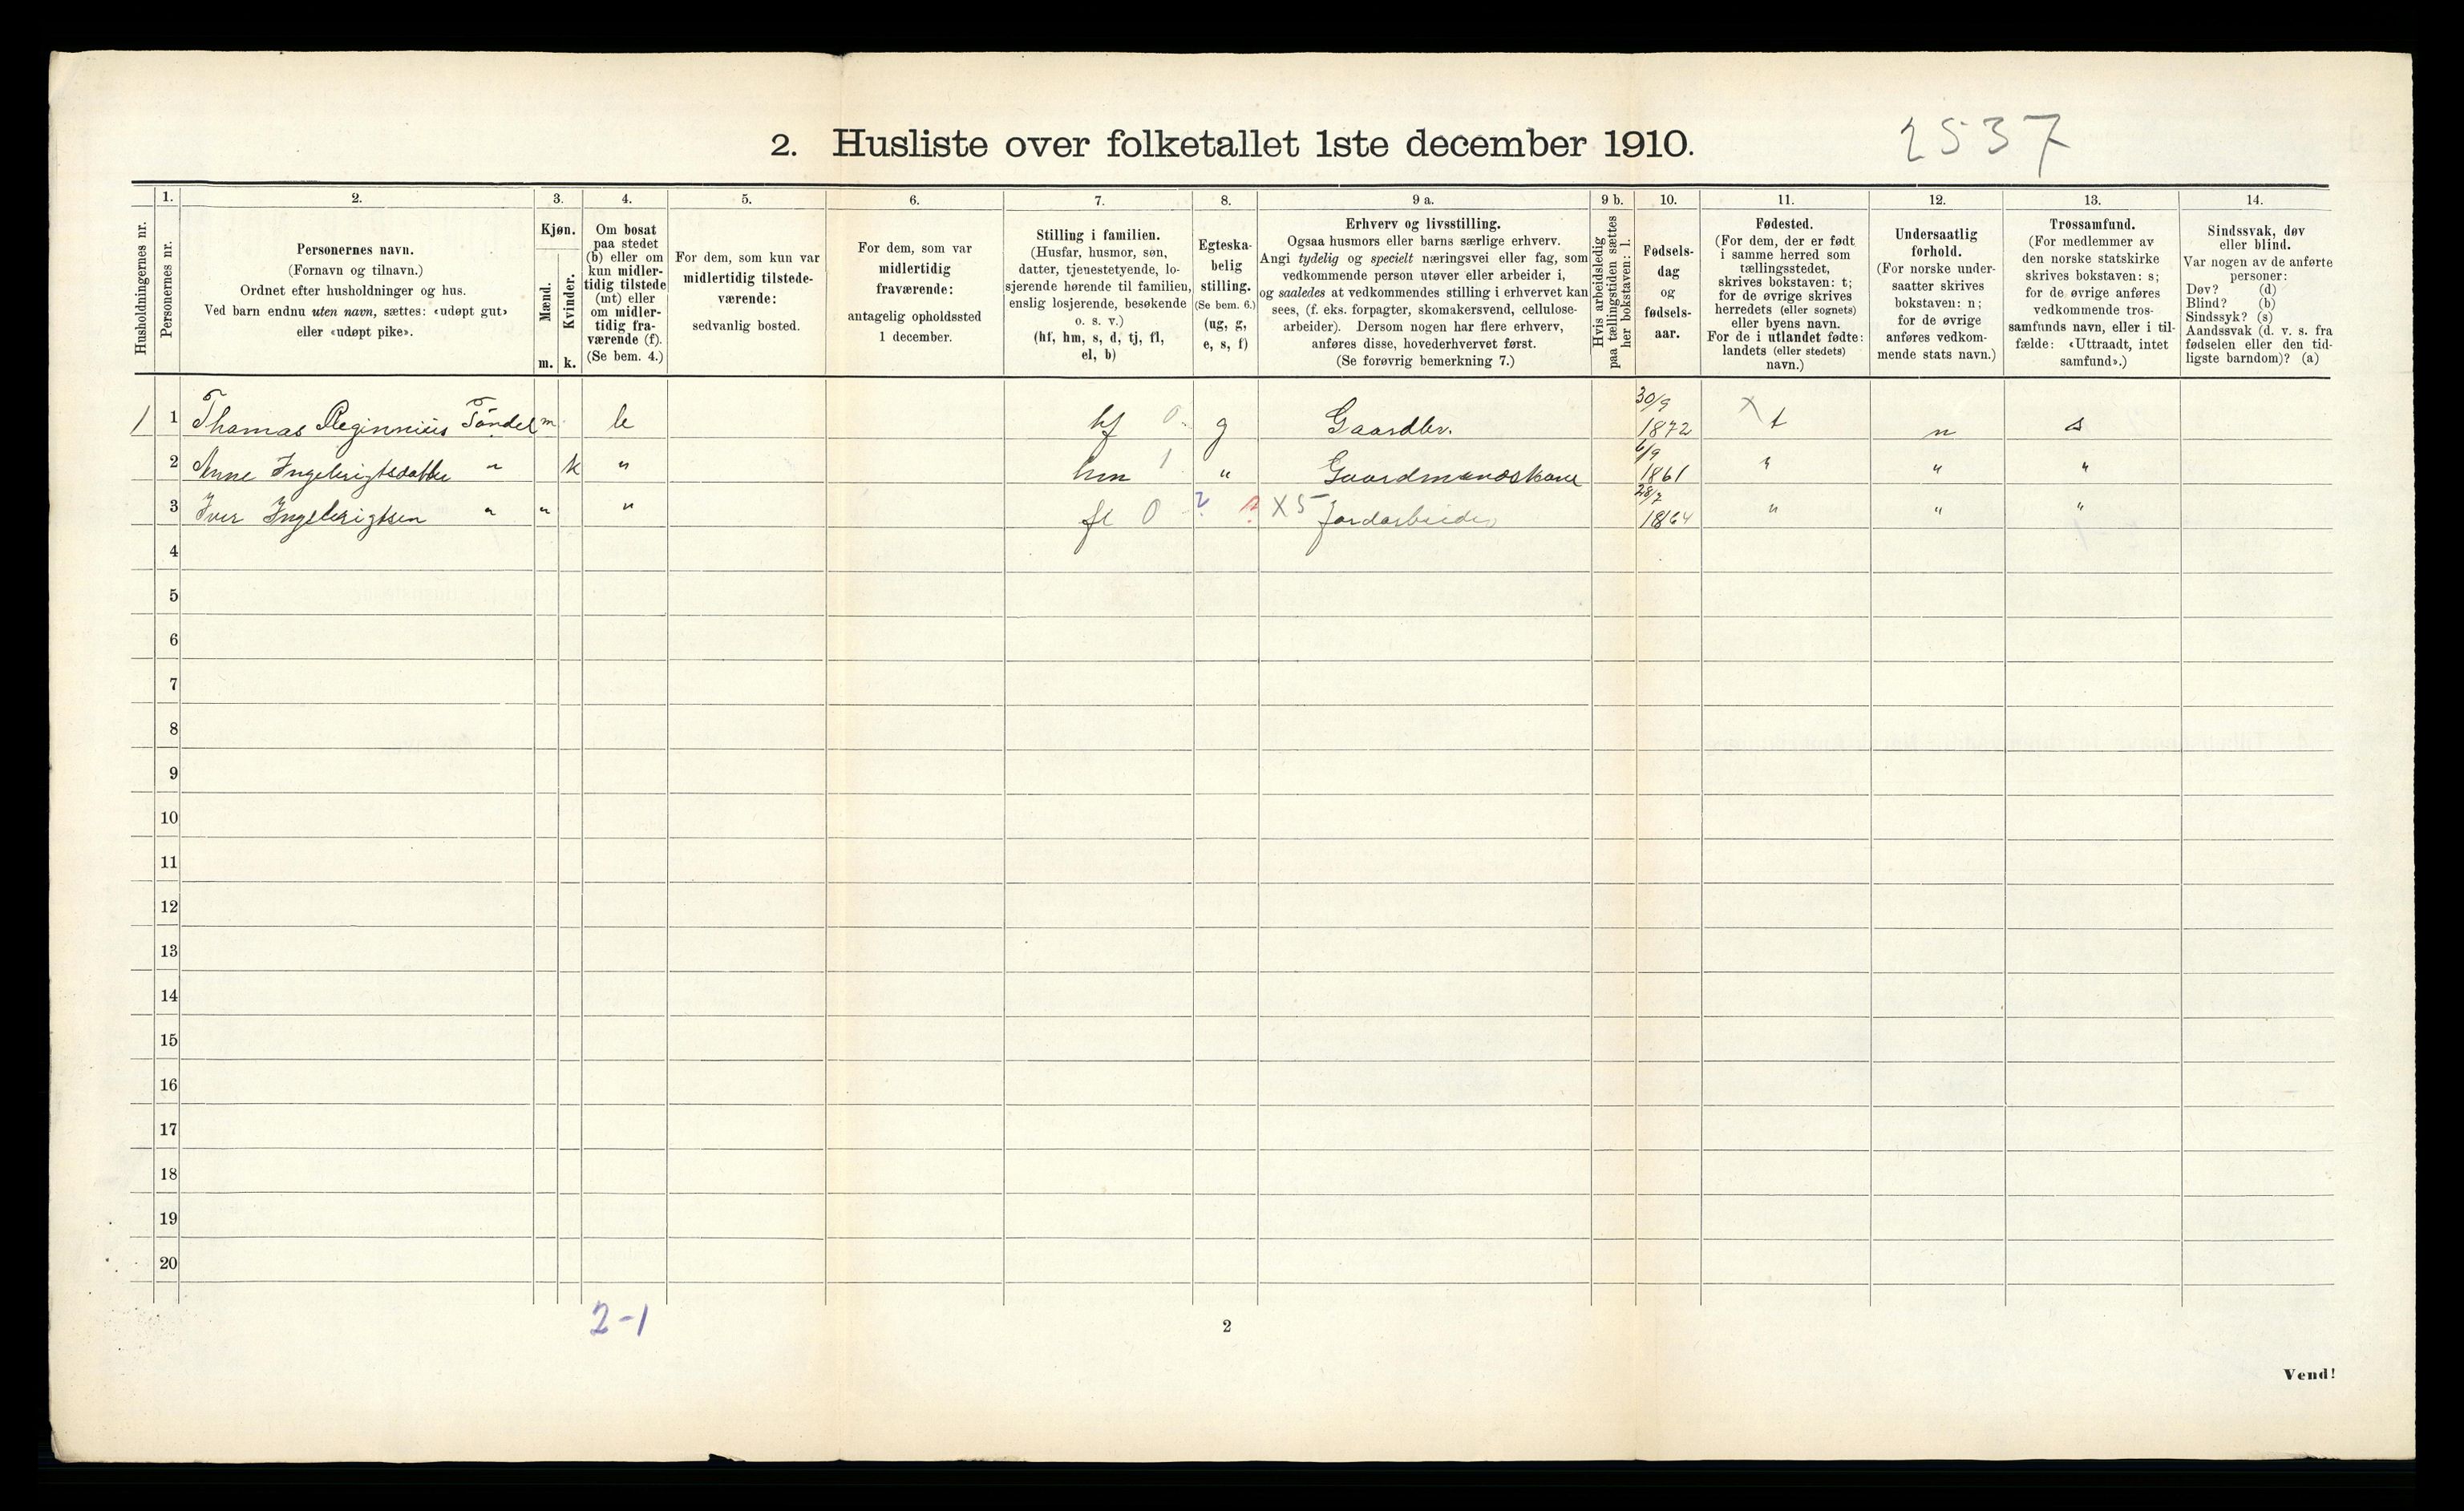 2. Husliste over folketallet 1ste december 1910.
2537
Husholdningernes nr.
1.
Personernes nr.
2.
Personernes navn.
(Fornavn og tilnavn.)
Ordnet efter husholdninger og hus.
Ved barn endnu uten navn, sættes: «udøpt gut»
eller «udøpt pike».
3.
Kjøn.
Mænd.
m.
Kvinder.
k.
4.
Om bosat
paa stedet
(b) eller om
kun midler-
tidig tilstede
(mt) eller
om midler-
tidig fra-
værende (f).
(Se bem. 4.)
5.
For dem, som kun var
midlertidig tilstede-
værende:
sedvanlig bosted.
6.
For dem, som var
midlertidig
fraværende:
antagelig opholdssted
1 december.
7.
Stilling i familien.
(Husfar, husmor, søn,
datter, tjenestetyende, lo-
sjerende hørende til familien,
enslig losjerende, besøkende
o. s. v.)
(hf, hm, s, d, tj, fl,
el, b)
8.
Egteska-
belig
stilling.
(Se bem. 6.)
(ug, g,
e, s, f)
9 a.
Erhverv og livsstilling.
Ogsaa husmors eller barns særlige erhverv.
Angi tydelig og specielt næringsvei eller fag, som
vedkommende person utøver eller arbeider i,
og saaledes at vedkommendes stilling i erhvervet kan
sees, (f. eks. forpagter, skomakersvend, cellulose-
arbeider). Dersom nogen har flere erhverv,
anføres disse, hovederhvervet først.
(Se forøvrig bemerkning 7.)
9 b.
Hvis arbeidsledig
paa tællingstiden sættes
her bokstaven: l.
10.
Fødsels-
dag
og
fødsels-
aar.
11.
Fødested.
(For dem, der er født
i samme herred som
tællingsstedet,
skrives bokstaven: t;
for de øvrige skrives
herredets (eller sognets)
eller byens navn.
For de i utlandet fødte:
landets (eller stedets)
navn.)
12.
Undersaatlig
forhold.
(For norske under-
saatter skrives
bokstaven: n;
for de øvrige
anføres vedkom-
mende stats navn.)
13.
Trossamfund.
(For medlemmer av
den norske statskirke
skrives bokstaven: s;
for de øvrige anføres
vedkommende tros-
samfunds navn, eller i til-
fælde: «Uttraadt, intet
samfund».)
14.
Sindssvak, døv
eller blind.
Var nogen av de anførte
personer:
Døv? (d)
Blind? (b)
Sindssyk? (s)
Aandssvak (d. v. s. fra
fødselen eller den tid-
ligste barndom)? (a)
1 1 Thomas Reginnius Tøndel m b hf 0 g Gaardbr. 30/9 1872 X t n s
2 Anne Ingebrigtsdatter " k " hm 1 " Gaardmandskone 6/9 1861 " " "
3 Iver Ingebrigtsen " " " fl 0 ? X5 Jordarbeider 28/7 1864 " " "
4
5
6
7
8
9
10
11
12
13
14
15
16
17
18
19
20
2-1
2
Vend!